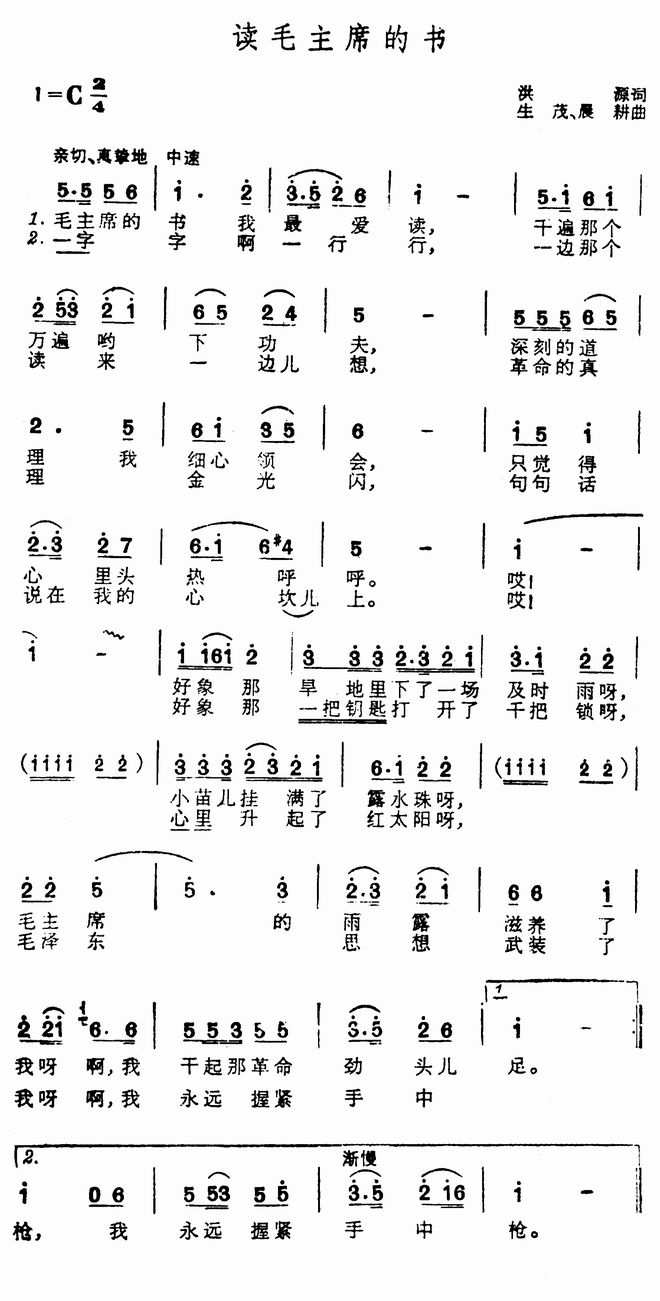 读毛主席的书
1=C 2/4
洪 源词
生 茂、晨 耕曲
亲切、真挚地 中速
5·5 5 6 | i · 2 | 3·5 2 6 | i - | 5·i 6 i |
1. 毛主席的 书 我 最 爱 读, 千遍那个
2. 一字 字 啊 一 行 行, 一边那个
2 53 2 i | 6 5 2 4 | 5 - | 5 5 5 6 5 |
万遍 哟 下 功 夫, 深刻的道
读 来 一 边儿 想, 革命的真
2 · 5 | 6 i 3 5 | 6 - | i 5 i |
理 我 细心 领 会, 只觉 得
理 金 光 闪, 句句 话
2·3 2 7 | 6·i 6 #4 | 5 - | i - |
心 里头 热 呼 呼。 哎!
说在 我的 心 坎儿 上。 哎!
i - | i i6i 2 | 3 3 3 2·3 2 i | 3·i 2 2 |
好象 那 旱 地里下了一场 及时 雨呀,
好象 那 一把钥匙打 开了 千把 锁呀,
(iiii 2 2) | 3 3 3 2 3 2 i | 6·i 2 2 | (iiii 2 2) |
小苗儿挂 满了 露水珠呀,
心里 升 起了 红太阳呀,
2 2 5 | 5 · 3 | 2·3 2 i | 6 6 i |
毛主 席 的 雨 露 滋养 了
毛泽 东 思 想 武装 了
1
2 2i i 6· 6 | 5 5 3 5 5 | 3·5 2 6 | i - :|
我呀 啊,我 干起那革命 劲 头儿 足。
我呀 啊,我 永远 握紧 手 中
2. 渐慢
i 0 6 | 5 53 5 5 | 3·5 2 i6 | i - |
枪, 我 永远 握紧 手 中 枪。